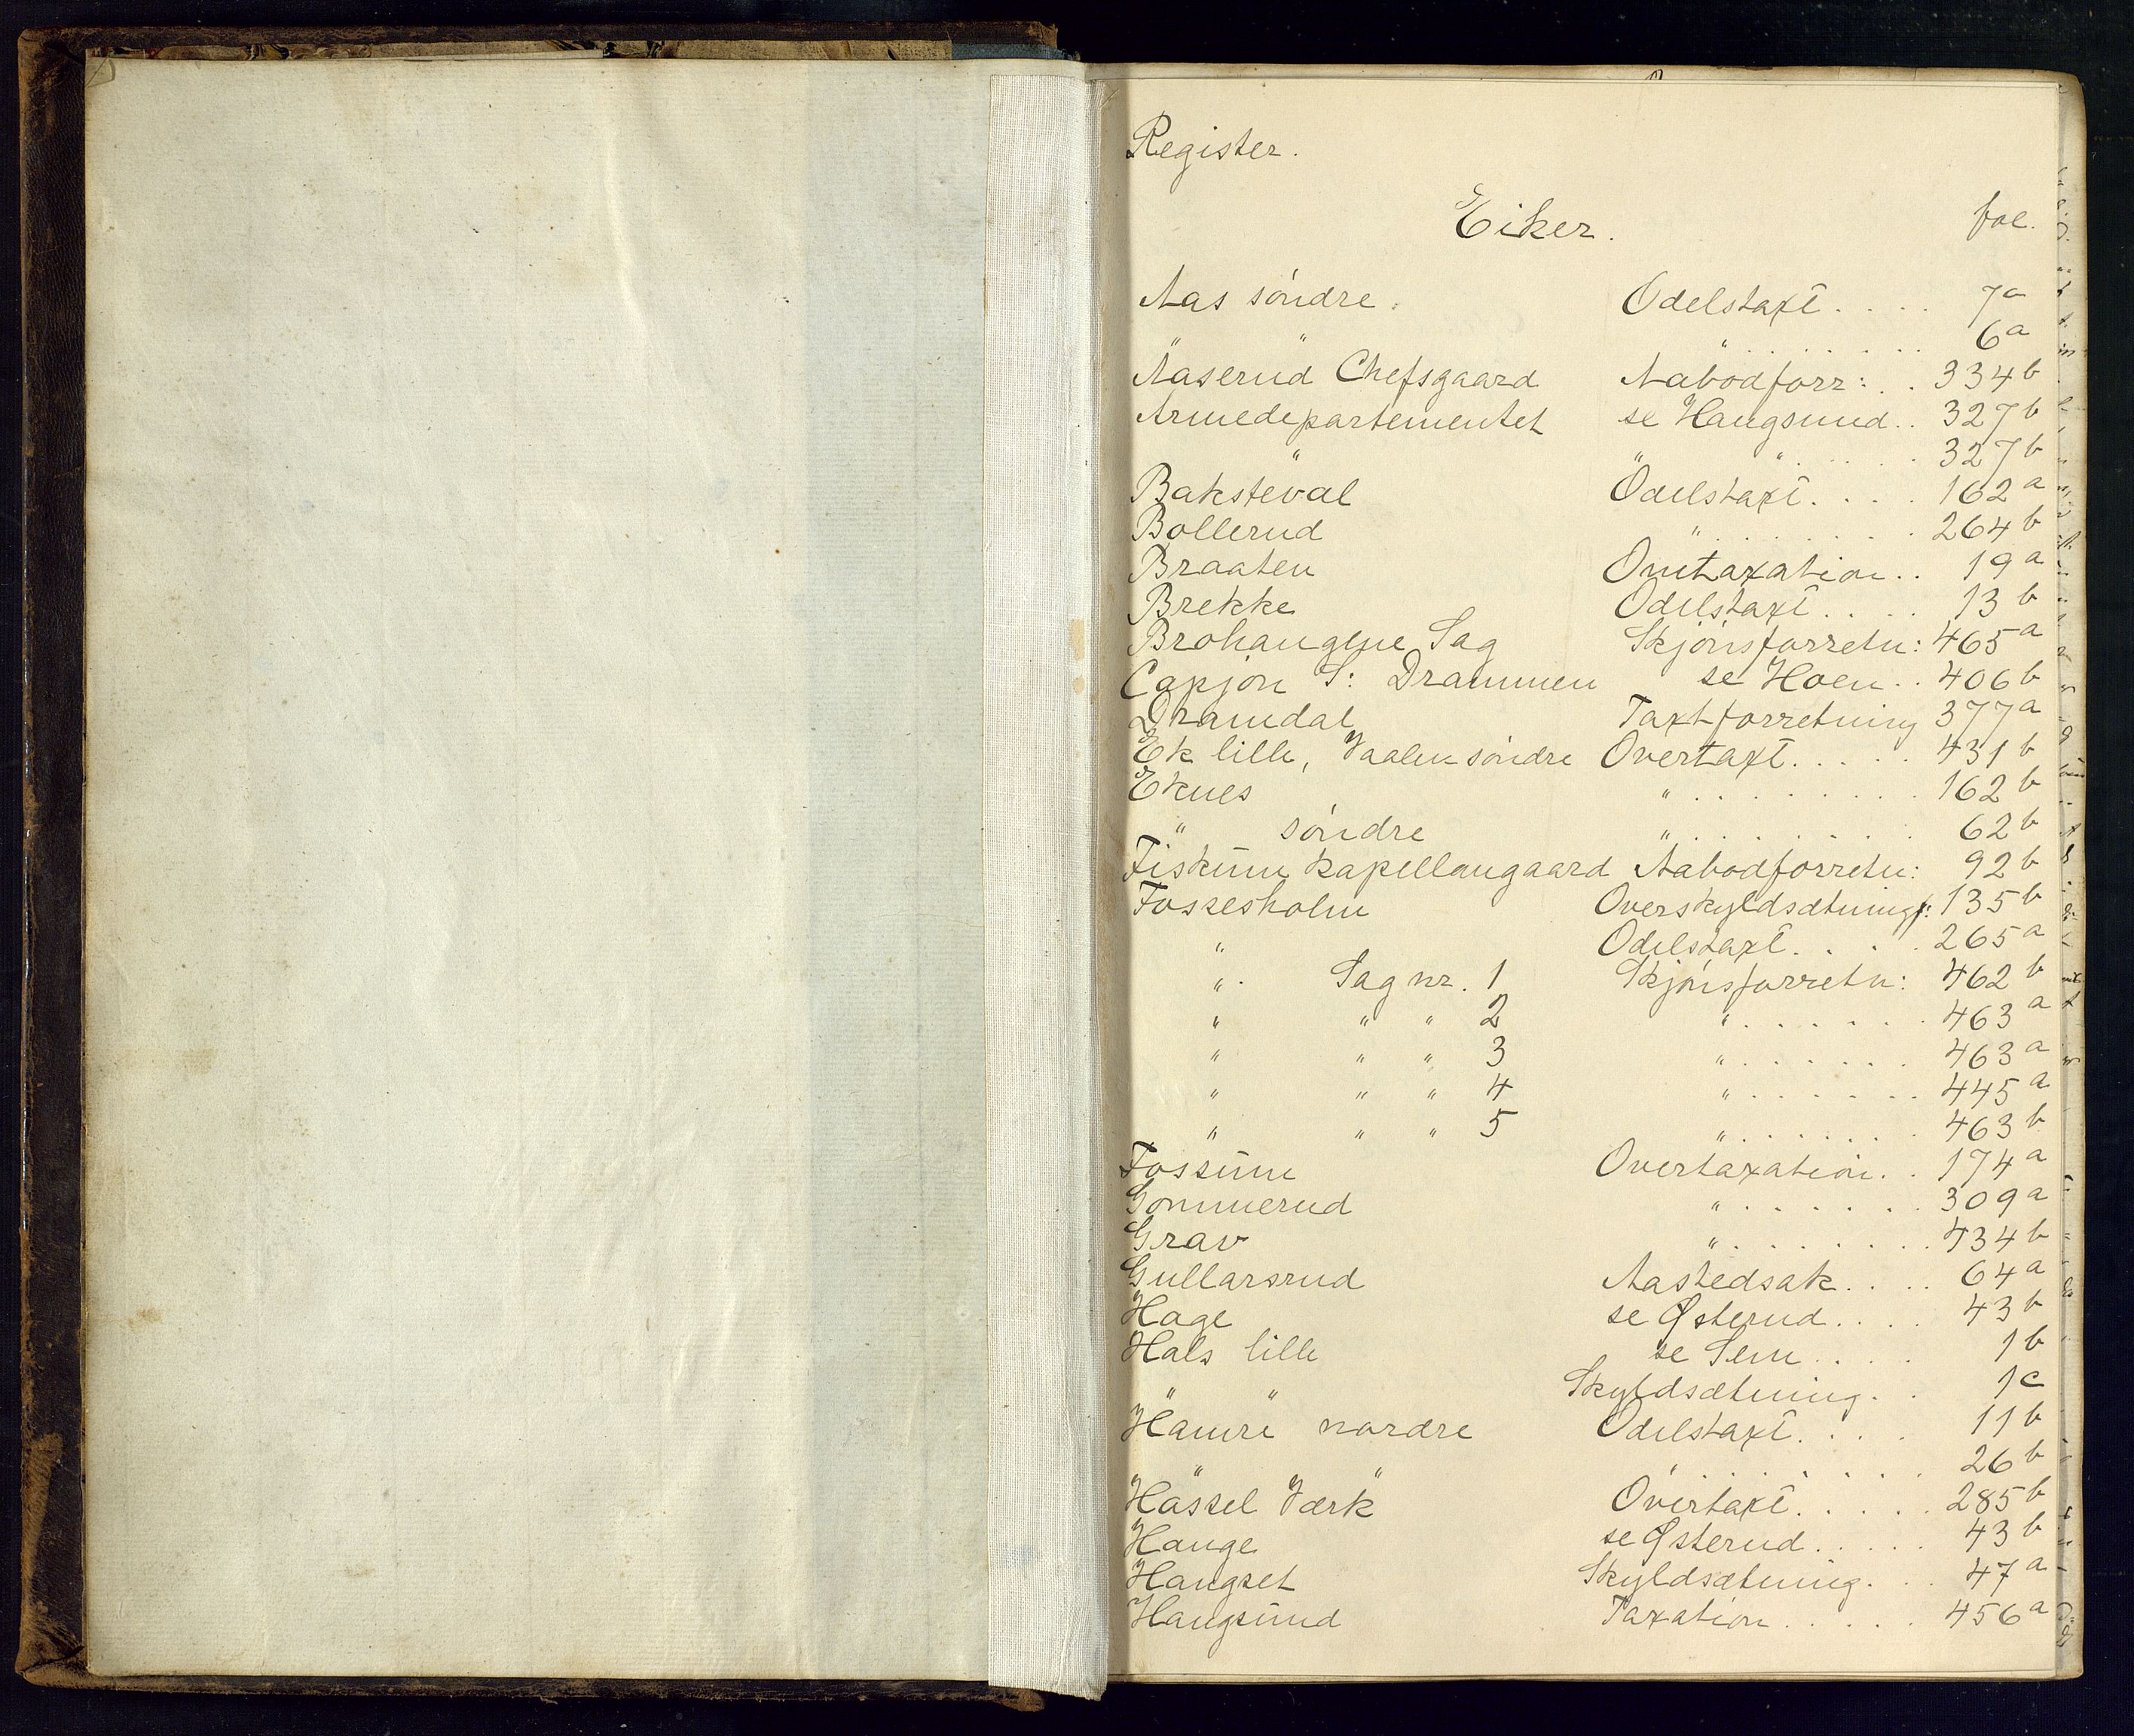 Register.
Eiker. fol.
Aas søndre. Odelstaxt . . . . 7a
" " " . . . . . . . 6a
Aaserud Chefsgaard Aabodforr: . . 334b
Armedepartementet se Haugsund . . 327b
" " " . . . . . 327b
Baksteval Odelstaxt . . . . 162a
Bollerud " . . . . . . . 264b
Braaten Omtaxation . . 19a
Brekke Odelstaxt . . . . 13b
Brohaugene Sag Skjønsforretn: 465a
Capjon S: Drammen se Hoen . . 406b
Dramdal Taxtforretning 377a
Ek lille, Vaalen søndre Overtaxt . . . . . 431b
Eknes " . . . . . . . . 162b
" søndre " . . . . . . . . 62b
Fiskum kapellangaard Aabodforretn: 92b
Fossesholm Overskyldsætningsf: 135b
" Odelstaxt . . . . 265a
" Sag nr. 1 Skjønsforretn: 462b
" " " 2 " . . . . . . . 463a
" " " 3 " . . . . . . . 463a
" " " 4 " . . . . . . . 445a
" " " 5 " . . . . . . . 463b
Fossum Overtaxation . . 174a
Gommerud " . . . . . . . 309a
Grav " . . . . . . . . 434b
Gullarsrud Aastedsak . . . . 64a
Hage se Østerud . . . . 43b
Hals lille se Sem . . . . 1b
" " Skyldsætning . . 1c
Hamre nordre Odelstaxt . . . . 11b
" " " . . . . . . . . 26b
Hassel Værk Overtaxt . . . . . 285b
Hauge se Østerud . . . . . 43b
Haugset Skyldsætning . . . 47a
Haugsund Taxation . . . . . 456a